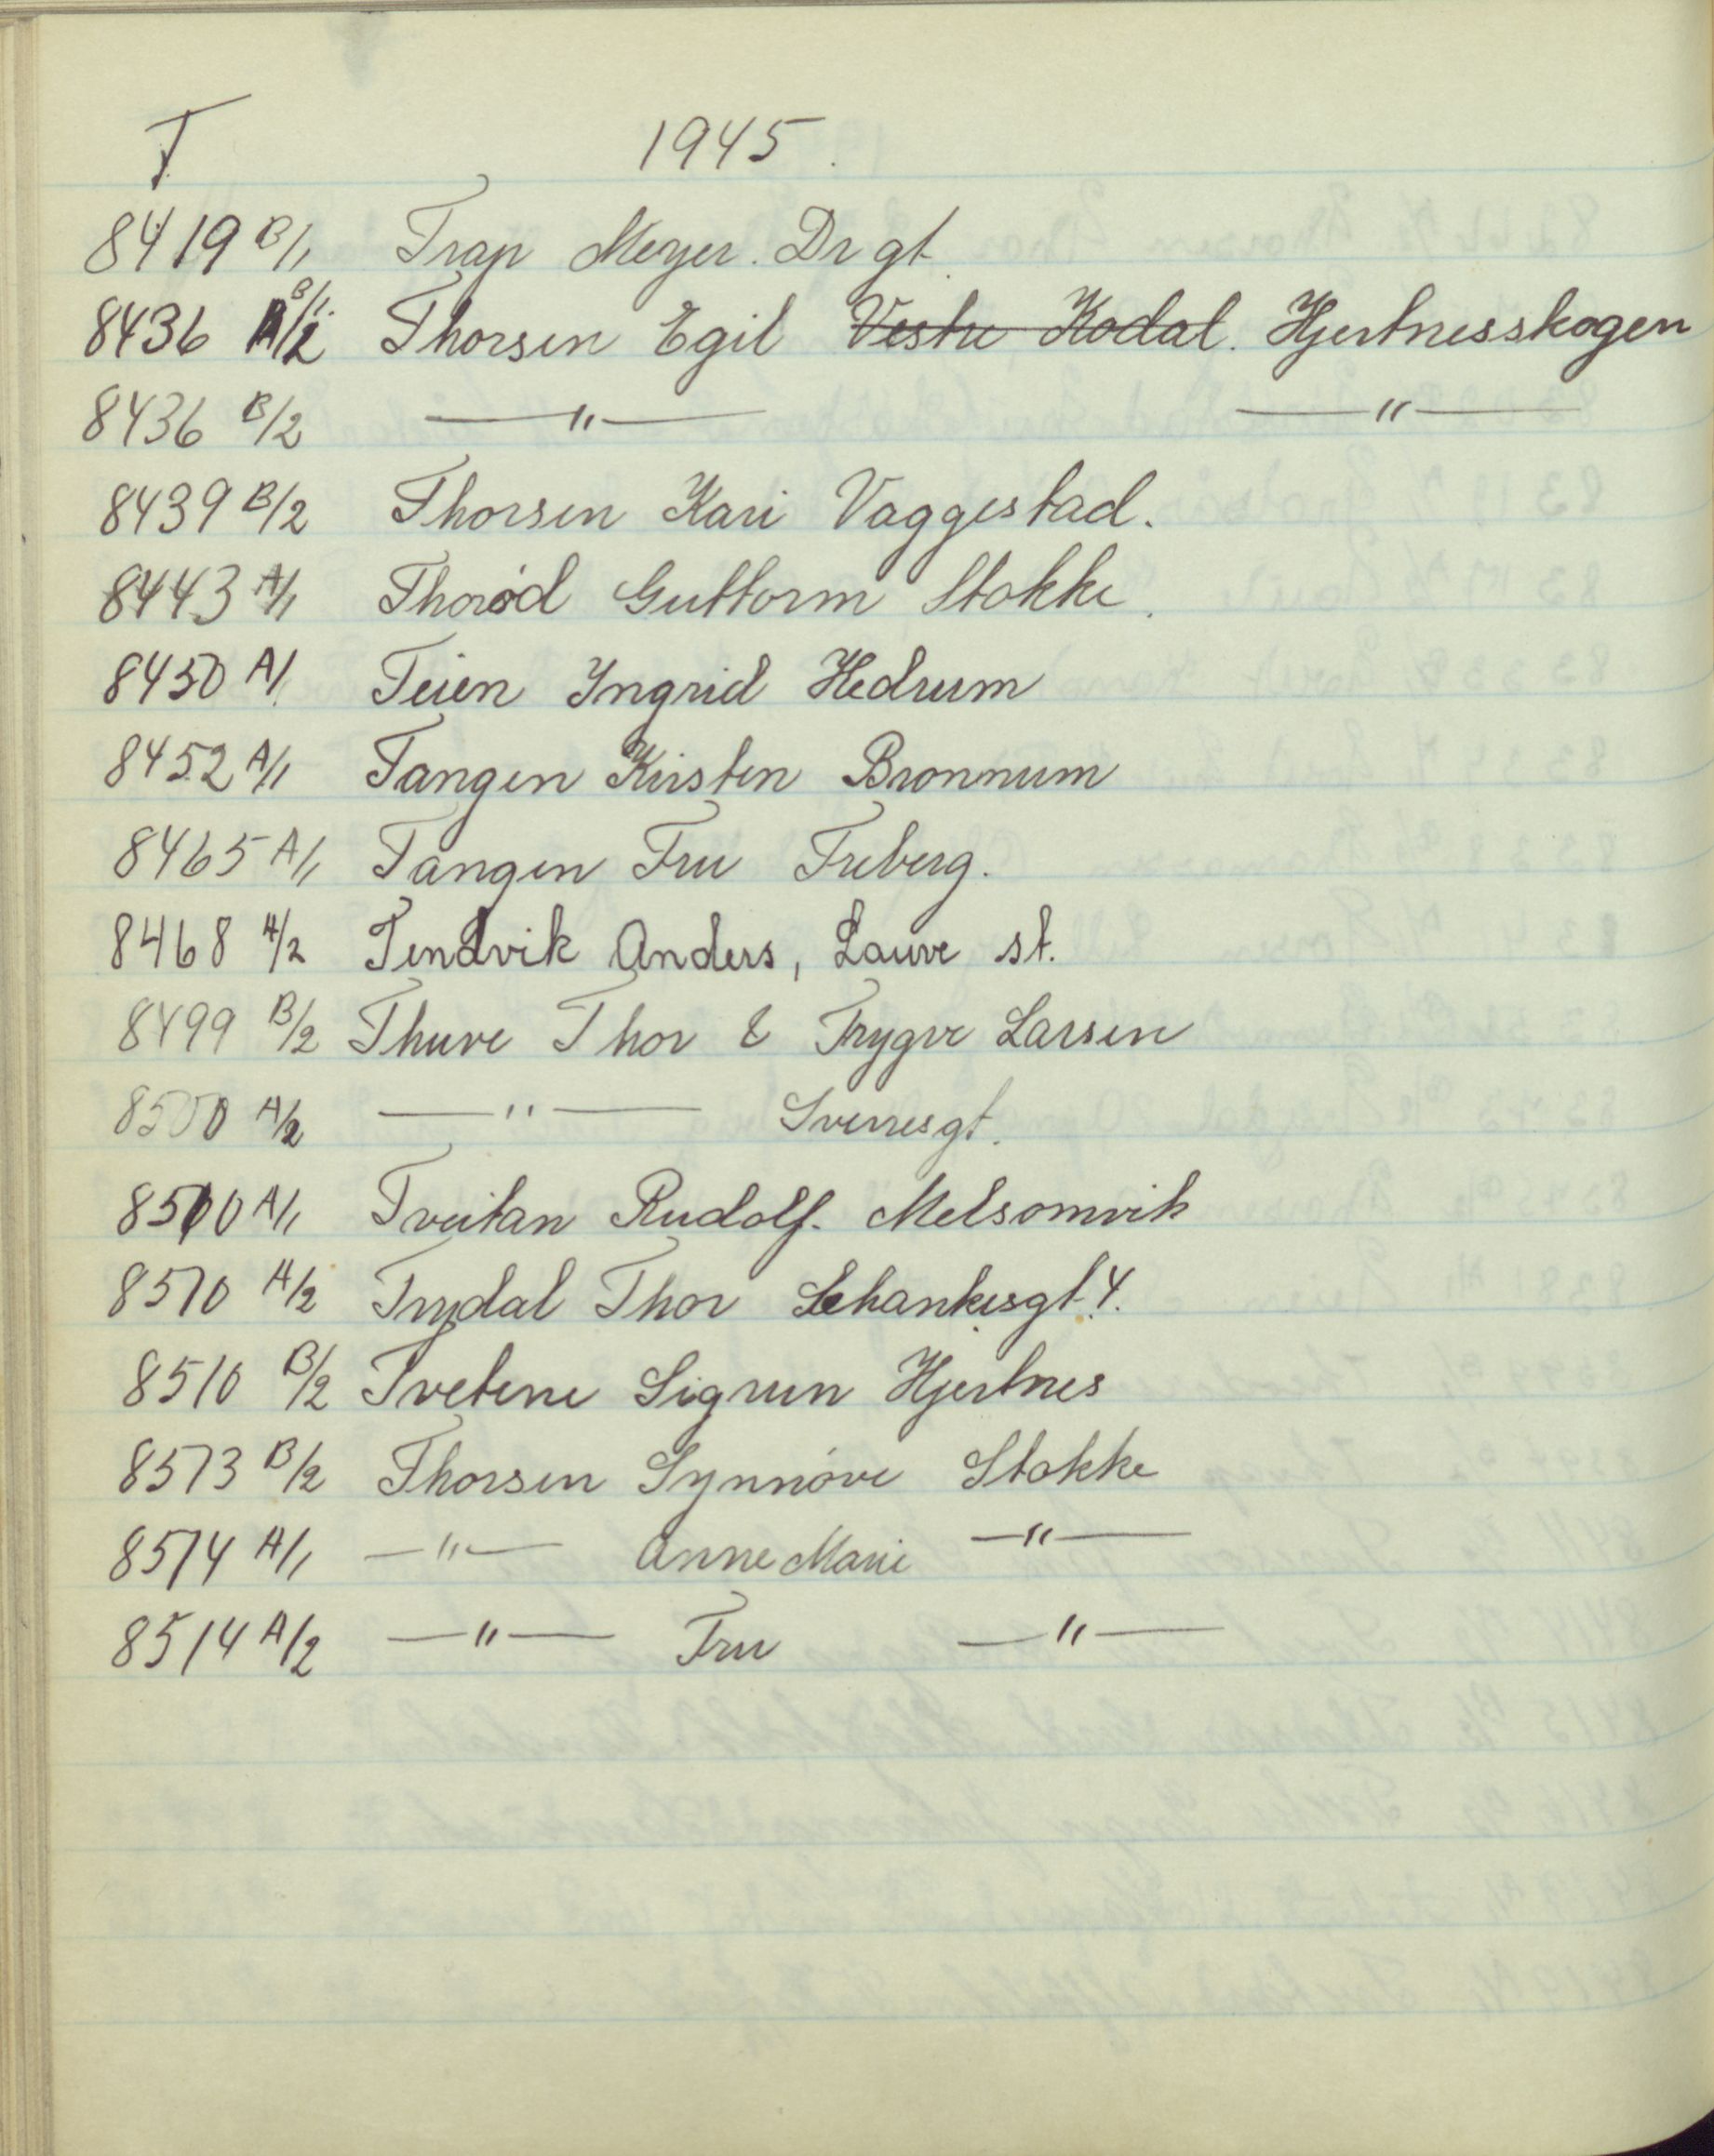 T 1945.
8419 B/1 Trap Meyer. Dr gt.
8436 A/2 B/1. Thorsen Egil Vestre Kodal. Hjertnesskogen
8436 B/2 —"— —"—
8439 B/2 Thorsen Kari Vaggestad.
8443 A/1 Thorød Guttorm Stokke.
8450 A/1 Teien Ingrid Hedrum
8452 A/1 Tangen Kirsten Bronnum
8465 A/1 Tangen Fru Freberg.
8468 A/2 Tendvik Anders, Lauve st.
8499 B/2 Thuve Thor & Trygve Larsen
8500 A/2 —"— Svenesgt.
8510 A/1 Tveitan Rudolf. Melsomvik
8510 A/2 Trydal Thor Schankesgt. 4.
8510 B/2 Tvetene Sigrun Hjertnes
8513 B/2 Thorsen Synnóve Stokke
8514 A/1 —"— Anne Marie —"—
8514 A/2 —"— Fru —"—